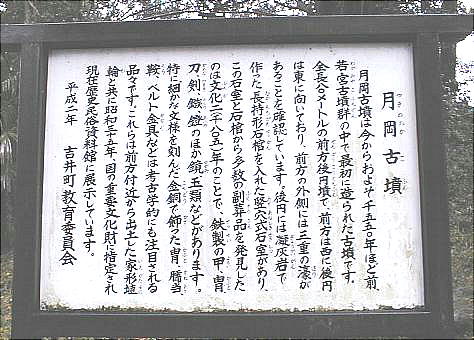 月岡古墳
つきのおか
月岡古墳は今からおよそ千五五〇年ほど前、
若宮古墳群の中で最初に造られた古墳です。
全長八〇メートルの前方後円墳で、前方は西に後円
は東に向いており、前方の外側には三重の濠が
あることを確認しています。後円には凝灰岩で
作った長持形石棺を入れた竪穴式石室があり、
この石室と石棺から多数の副葬品を発見した
のは文化二(一八〇五)年のことで、鉄製の甲、冑、
刀、剣、鏃、鐙のほか鏡、玉類などがあります。
特に細かな文様を刻んだ金銅で飾った冑、臑当、
鞍、ベルト金具などは考古学的にも注目される
品々です。これらは前方付近から出土した家形埴
輪と共に昭和三十五年、国の重要文化財に指定され
現在歴史民俗資料館に展示しています。
平成二年 吉井町教育委員会